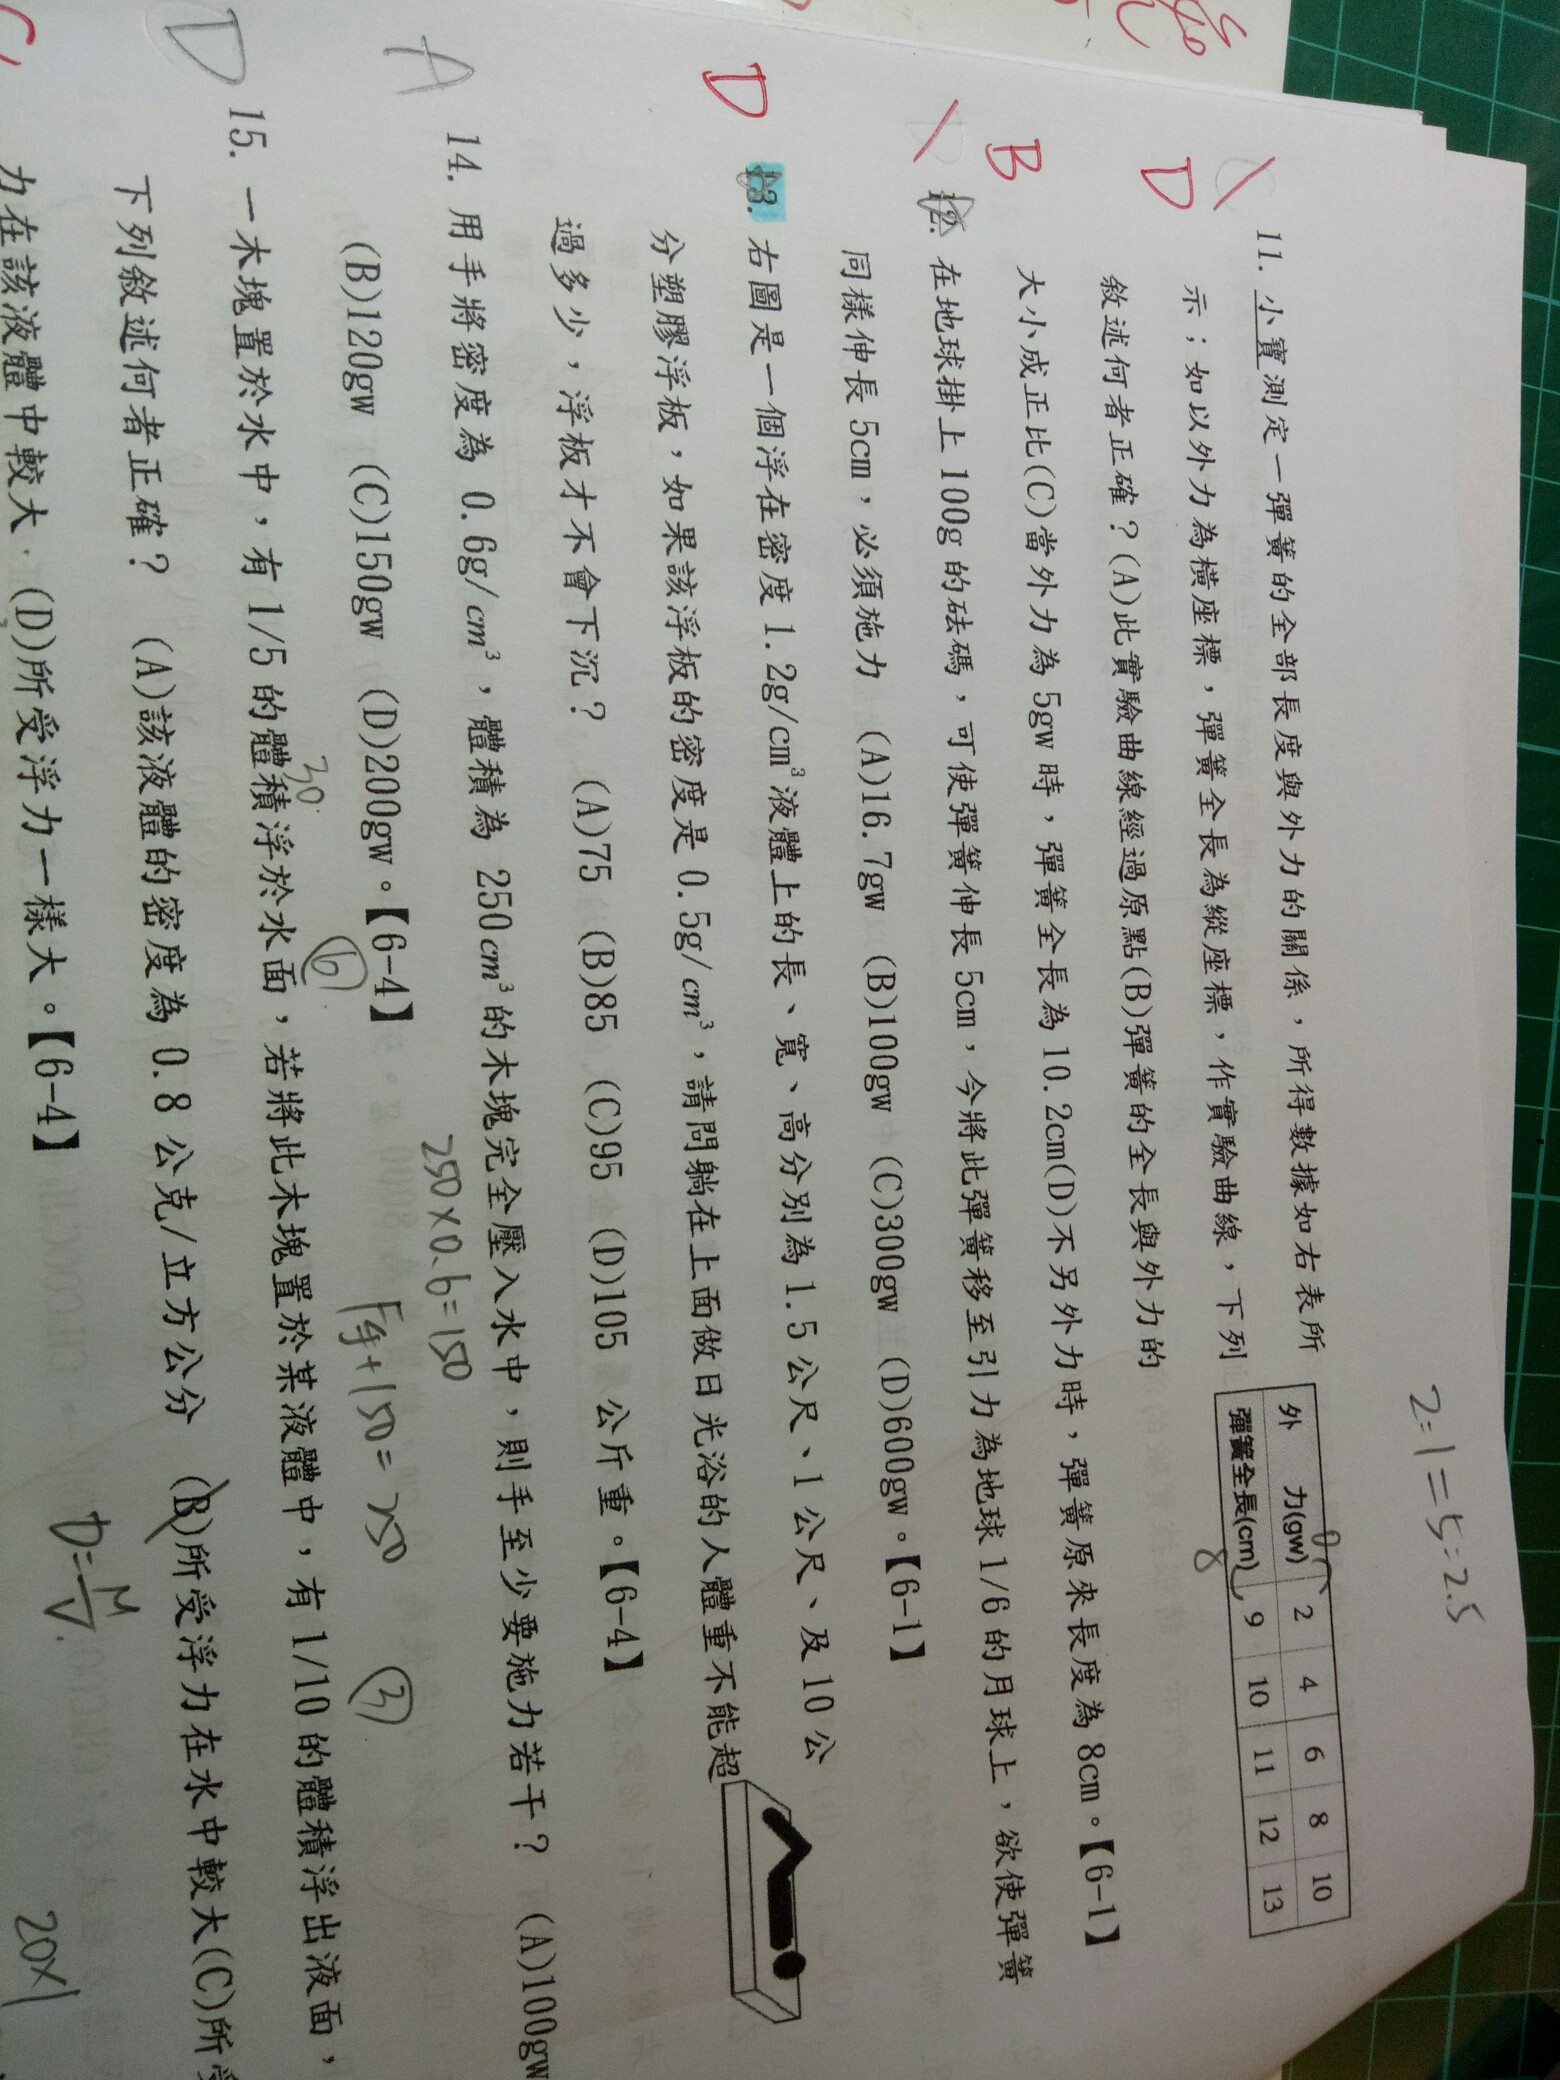 2=1=5=2.5
D
11. 小寶測定一彈簧的全部長度與外力的關係，所得數據如右表所
示；如以外力為橫座標，彈簧全長為縱座標，作實驗曲線，下列
敘述何者正確？(A)此實驗曲線經過原點(B)彈簧的全長與外力的
大小成正比(C)當外力為5gw時，彈簧全長為10.2cm(D)不另外力時，彈簧原來長度為8cm。【6-1】
外 力(gw) 2 4 6 8 10
彈簧全長(cm) 9 10 11 12 13
0
8
B
12. 在地球掛上100g的砝碼，可使彈簧伸長5cm，今將此彈簧移至引力為地球1/6的月球上，欲使彈簧
同樣伸長5cm，必須施力 (A)16.7gw (B)100gw (C)300gw (D)600gw。【6-1】
D
13. 右圖是一個浮在密度1.2g/cm³液體上的長、寬、高分別為1.5公尺、1公尺、及10公
分塑膠浮板，如果該浮板的密度是0.5g/cm³，請問躺在上面做日光浴的人體重不能超
過多少，浮板才不會下沉？ (A)75 (B)85 (C)95 (D)105 公斤重。【6-4】
A
14. 用手將密度為 0.6g/cm³，體積為 250cm³的木塊完全壓入水中，則手至少要施力若干？ (A)100gw
(B)120gw (C)150gw (D)200gw。【6-4】
250×0.6=150
F手+150=250
D
15. 一木塊置於水中，有1/5的體積浮於水面，若將此木塊置於某液體中，有1/10的體積浮出液面，
30
6
3
下列敘述何者正確？ (A)該液體的密度為0.8公克/立方公分 (B)所受浮力在水中較大(C)所受
力在該液體中較大 (D)所受浮力一樣大。【6-4】
D=M/V
20×1